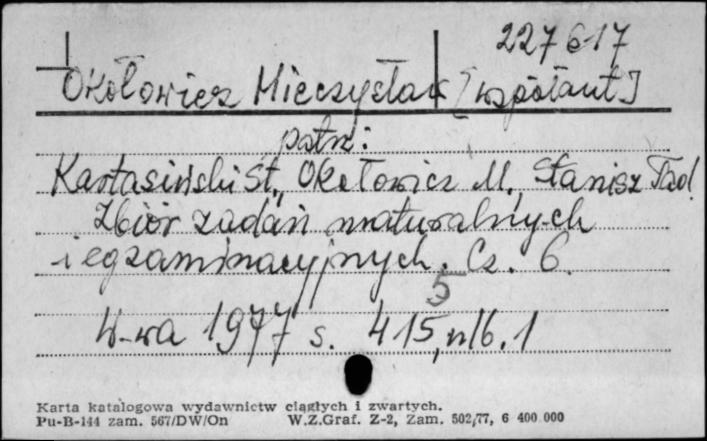 227 617
Okołowicz Mieczysław [współaut]
patrz:
Kartasiński St., Okołowicz M., Stanisz Tad.
Zbiór zadań maturalnych
i egzaminacyjnych. Cz. 6.
5
W-wa 1977 s. 415, nlb. 1
Karta katalogowa wydawnictw ciągłych i zwartych.
Pu-B-144 zam. 567/DW/On W.Z.Graf. Z-2, Zam. 502/77, 6 400 000